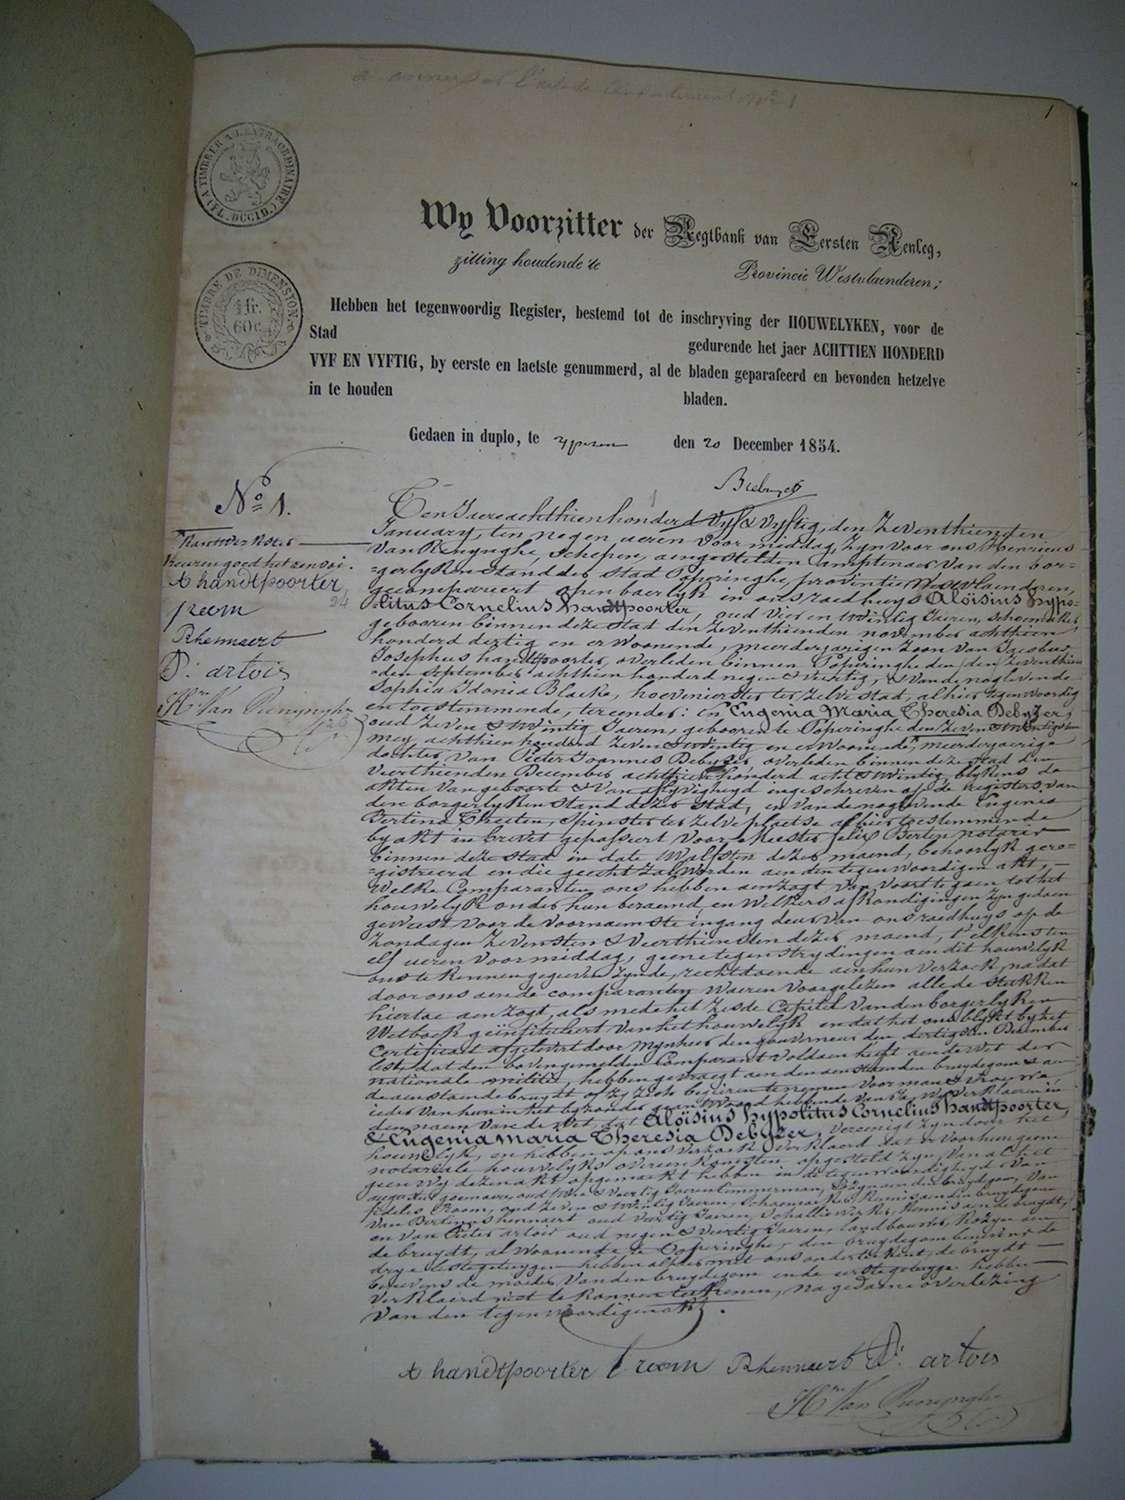 1
TIMBRE A L'EXTRAORDINAIRE
TIMBRE DE DIMENSION
1 fr.
60 c.
Wy Voorzitter der Regtbank van Eersten Aenleg,
zitting houdende te Provincie Westvlaenderen;
Hebben het tegenwoordig Register, bestemd tot de inschryving der HOUWELYKEN, voor de
Stad gedurende het jaer ACHTTIEN HONDERD
VYF EN VYFTIG, by eerste en laetste genummerd, al de bladen geparafeerd en bevonden hetzelve
in te houden bladen.
Gedaen in duplo, te Yperen den 20 December 1854.
N° 1.
goed het een
A handtpoorter
24
Rhennaert
P: artois
Hri Van Renynghe
Ten Jaere achthien honderd vyf & vyftig, den Zeventhienden
January, ten negen ueren voormiddag, zyn voor ons Henricus
Van Renynghe, schepen, aengestelden amptenaer van den bor-
=gerlyken stand der stad Poperinghe, provintie Westvlaenderen,
gecompareert openbaerlyk in ons raedhuys Aloïsius hypo-
litus Cornelius handtpoorter, oud vier en twintig Jaeren, schoenmaker,
gebooren binnen deze stad den zeventhienden november achthien
honderd dertig en er woonende, meerderjaerigen zoon van
Josephus handtpoorter, overleden binnen Poperinghe den zeventhien
-den september achthien honderd negen & veertig, & van de naglevende
Sophia Idonia Blaeke, hovenierster ter zelve stad, alhier tegenwoordig
en toestemmende, ter eender: En Eugenia Maria Theresia Debyzer,
oud zeven & twintig Jaeren, gebooren te Poperinghe den zeven & twintigsten
mey achthien honderd zeven & twintig en er woonende, meerderjaerige
dochter van Pieter Joannes Debyzer overleden binnen deze stad den
Veerthienden December achthien honderd acht & twintig, blykens de
akten van geboorte & van aflyvigheyd ingeschreven op de registers van
den borgerlyken stand dezer stad, en van de naglevende Eugenia
Bertina Theeten, spinster ter zelve plaetse alhier toestemmende
by akt in brevet gepasseert voor Meester felix Berten notaris
binnen deze stad in date twalfsten dezer maend, behoorlyk gere-
=gistreerd en die gehecht zal worden aen den tegenwoordigen akt,
Welke Comparanten ons hebben aenzogt van voort te gaen tot het
houwelyk onder hun beraemd en welkers afkondigingen zyn gedaen
geweest voor de voornaemste ingang deur van ons raedhuys op de
zondagen zevensten & veerthiensten dezer maend, telkens ten
elf ueren voormiddag, geene tegenstrydingen aen dit houwelyk
ons te kennen gegeven zynde, rechtdoende aen hun verzoek, na dat
door ons aen de comparanten waeren voorgelezen alle de stukken
hiertoe aenzogt, als mede het zesde Capittel van den borgerlyken
Wetboek geïntituleert van het houwelyk en dat het ons blykt by het
certificaet afgelevert door mynheer den gouverneur den dertigsten December
lest, dat den bovengemelden Comparant voldaen heeft aen de wet der
nationale militie, hebben gevraegt aen den aenstaenden bruydegom & aen
de aenstaende bruydt of zy zich begeeren te nemen voor man & vrouw
ieder van hun in het byzonder geantwoord hebbende van Ja, wy verklaeren in
den naem van de Wet, dat Aloïsius hypolitus Cornelius handtpoorter,
& Eugenia Maria Theresia Debyzer, vereenigt zyn door het
houwelyk, en hebben op ons verzoek verklaerd dat er voorhun geene
notariale houwelyks overeenkomsten opgesteld zyn, van al het
geen wy dezen akt opgemaekt hebben in de tegenwoordigheyd van
en van Pieter artois oud negen & veertig Jaeren, landbouwer, kozyn aen
de bruydt, al woonende te Poperinghe, den bruydegom benevens de
drye leste getuygen hebben alhier met ons onderteekent, de bruydt
benevens de moeder van den bruydegom en de eerste getuyge hebben
verklaerd niet te konnen teekenen, na gedaene overlezing
van den tegenwoordigen akt.
A handtpoorter Rhennaert P: artois
Hri Van Renynghe